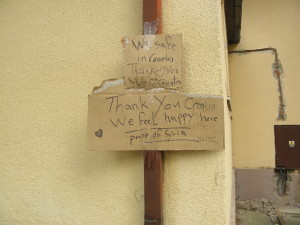 We safe
in Croatia
Thank you
We ♡ Croatia
Thank You Croatia
We feel happy here
people of Syria